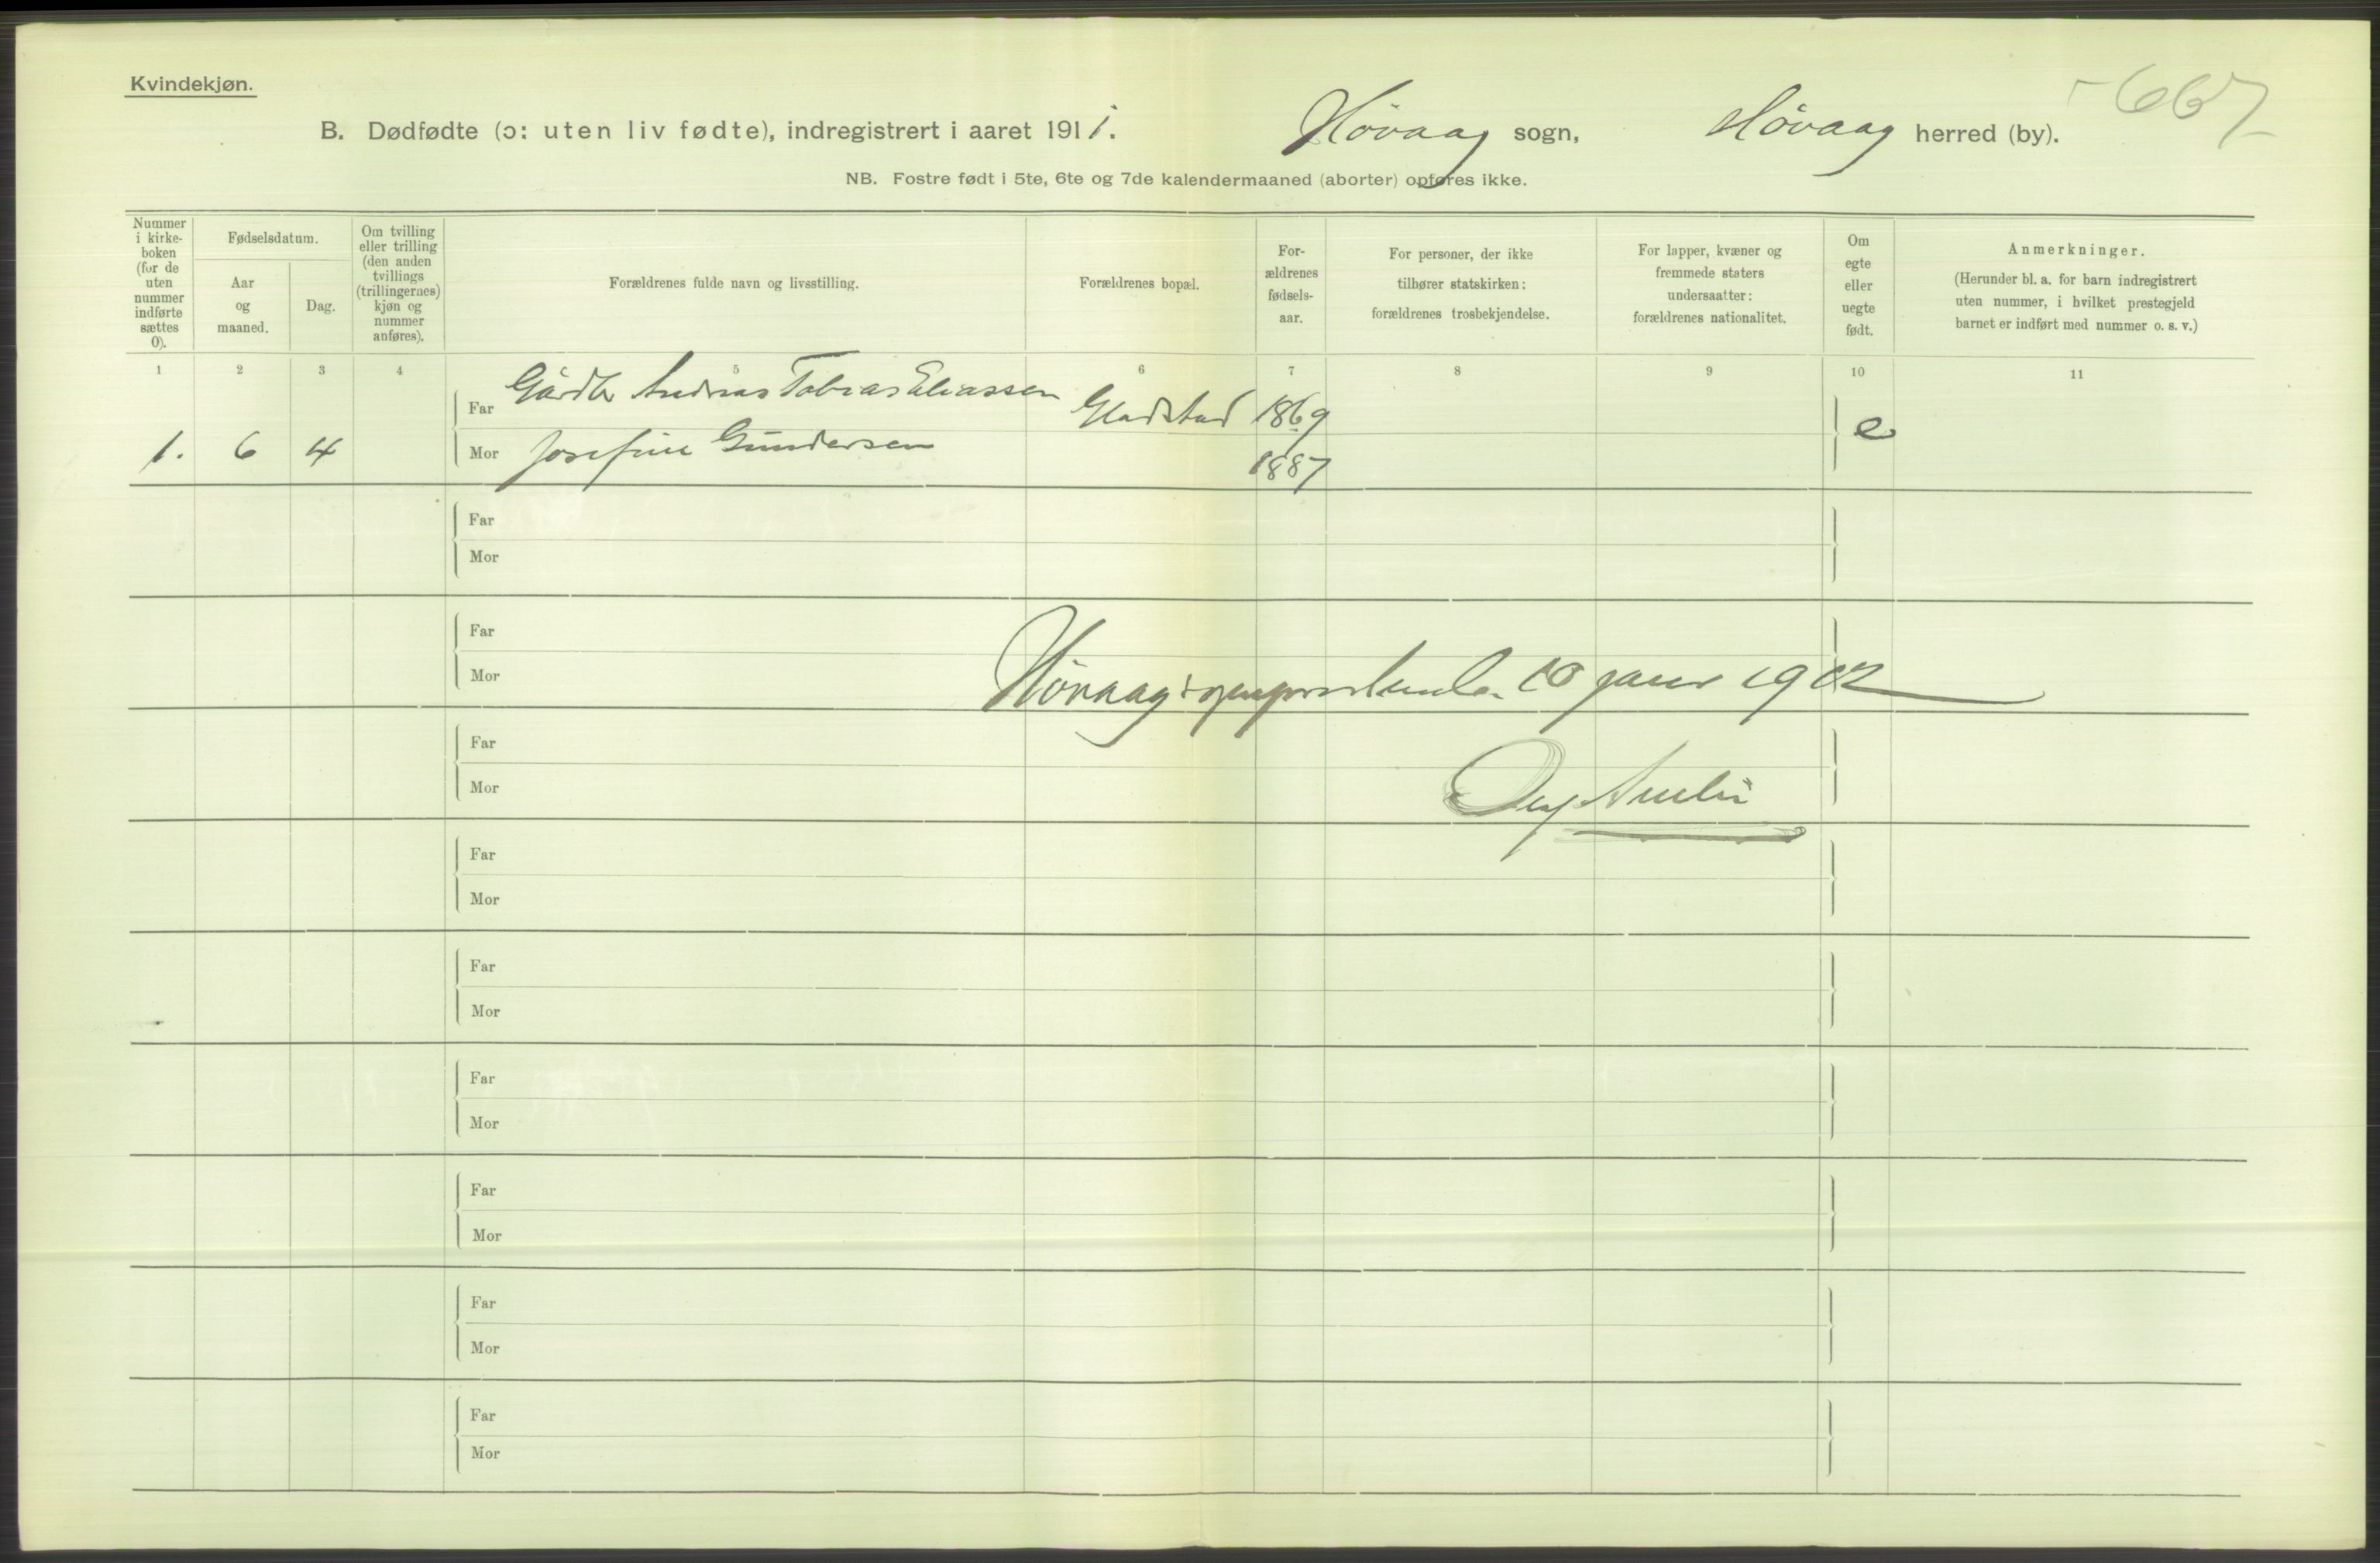 Kvindekjøn.
667
B. Dødfødte (ɔ: uten liv fødte), indregistrert i aaret 1911. Høvaag sogn, Høvaag herred (by).
NB. Fostre født i 5te, 6te og 7de kalendermaaned (aborter) opføres ikke.
Nummer i kirke- boken (for de uten nummer indførte sættes 0).
Fødselsdatum.
Aar og maaned.
Dag.
Om tvilling eller trilling (den anden tvillings (trillingernes) kjøn og nummer anføres).
Forældrenes fulde navn og livsstilling.
Forældrenes bopæl.
For- ældrenes fødsels- aar.
For personer, der ikke tilhører statskirken: forældrenes trosbekjendelse.
For lapper, kvæner og fremmede staters undersaatter: forældrenes nationalitet.
Om egte eller uegte født.
Anmerkninger.
(Herunder bl. a. for barn indregistrert uten nummer, i hvilket prestegjeld barnet er indført med nummer o. s. v.)
1 2 3 4 5 6 7 8 9 10 11
Far Gårdbr Andreas Tobias Eliassen Gladstad 1869
1. 6 4 Mor Josefine Gundersen 1887 e
Far
Mor
Far
Mor
Høvaag 10 januar 1912
Far
Mor
Far
Mor
Far
Mor
Far
Mor
Far
Mor
Far
Mor
Far
Mor